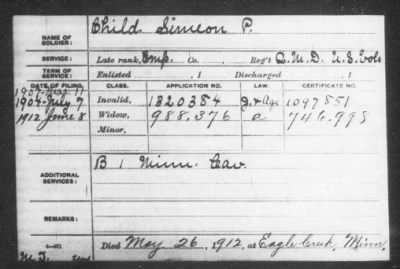 Child, Simeon P.
NAME OF SOLDIER:
SERVICE: Late rank, Emp. Co. Reg't Q.M.D. U.S. Vols
TERM OF SERVICE: Enlisted , 1 Discharged , 1
DATE OF FILING. CLASS. APPLICATION NO. LAW. CERTIFICATE NO.
1904 July 9 Invalid, 1320384 1097851
1912 June 8 Widow, 988.376 a 746.998
Minor,
ADDITIONAL SERVICES: B 1 Minn. Cav.
REMARKS:
Died May 26, 1912, at Eagle Creek, Minn.